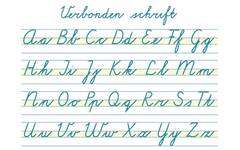 Verbonden schrift
Aa Bb Cc Dd Ee Ff Gg
Hh Ii Jj Kk Ll Mm
Nn Oo Pp Qq Rr Ss Tt
Uu Vv Ww Xx Yy Zz